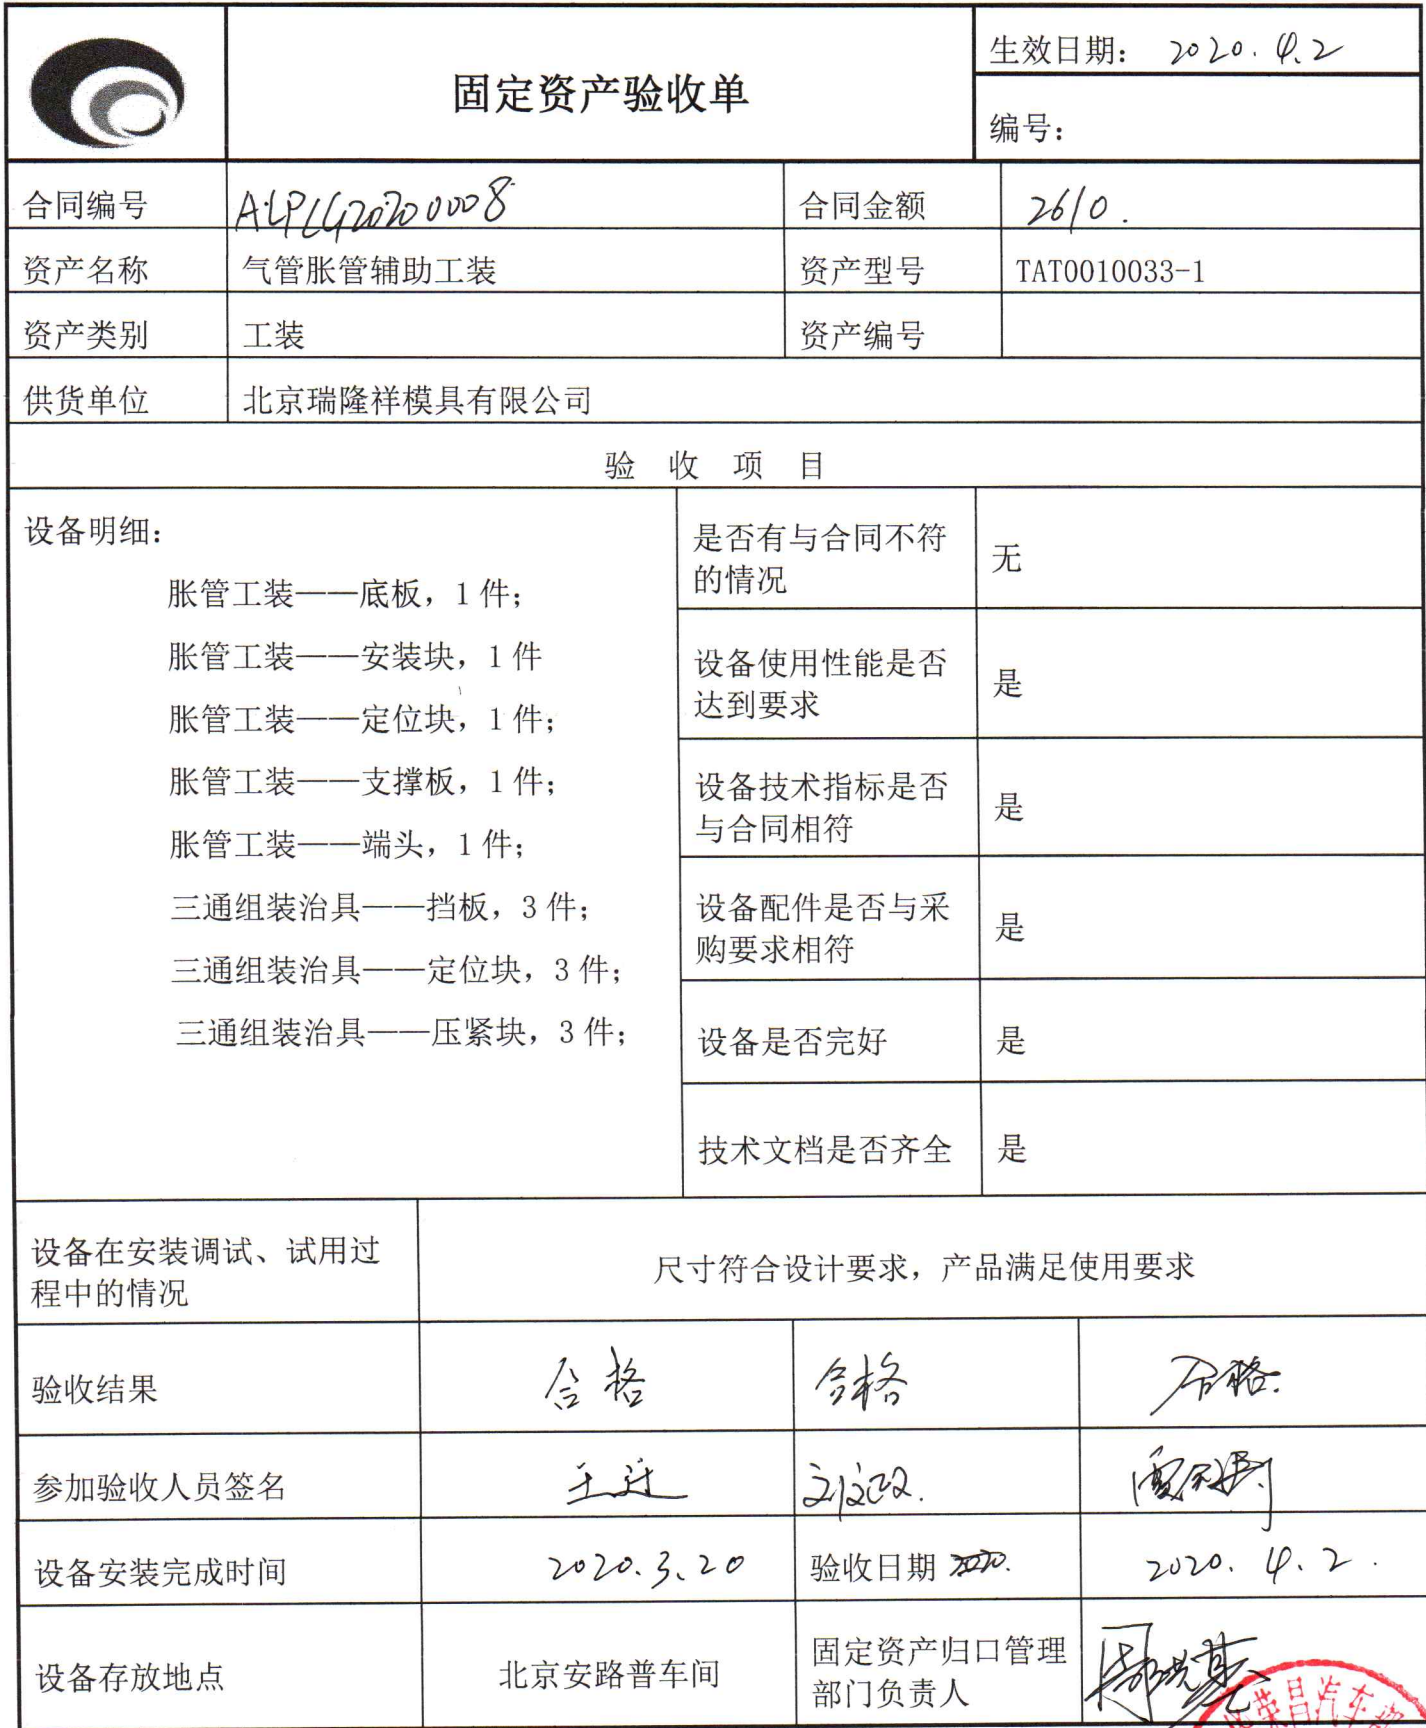 固定资产验收单
生效日期： 2020.4.2
编号：
合同编号 ALPCG20200008 合同金额 2610.
资产名称 气管胀管辅助工装 资产型号 TAT0010033-1
资产类别 工装 资产编号
供货单位 北京瑞隆祥模具有限公司
验 收 项 目
设备明细：
胀管工装——底板，1 件；
胀管工装——安装块，1 件
胀管工装——定位块，1 件；
胀管工装——支撑板，1 件；
胀管工装——端头，1 件；
三通组装治具——挡板，3 件；
三通组装治具——定位块，3 件；
三通组装治具——压紧块，3 件；
是否有与合同不符
的情况
无
设备使用性能是否
达到要求
是
设备技术指标是否
与合同相符
是
设备配件是否与采
购要求相符
是
设备是否完好 是
技术文档是否齐全 是
设备在安装调试、试用过
程中的情况
尺寸符合设计要求，产品满足使用要求
验收结果 合格 合格 合格.
参加验收人员签名
设备安装完成时间 2020.3.20 验收日期 2020. 4. 2.
设备存放地点 北京安路普车间
固定资产归口管理
部门负责人
荣昌汽车